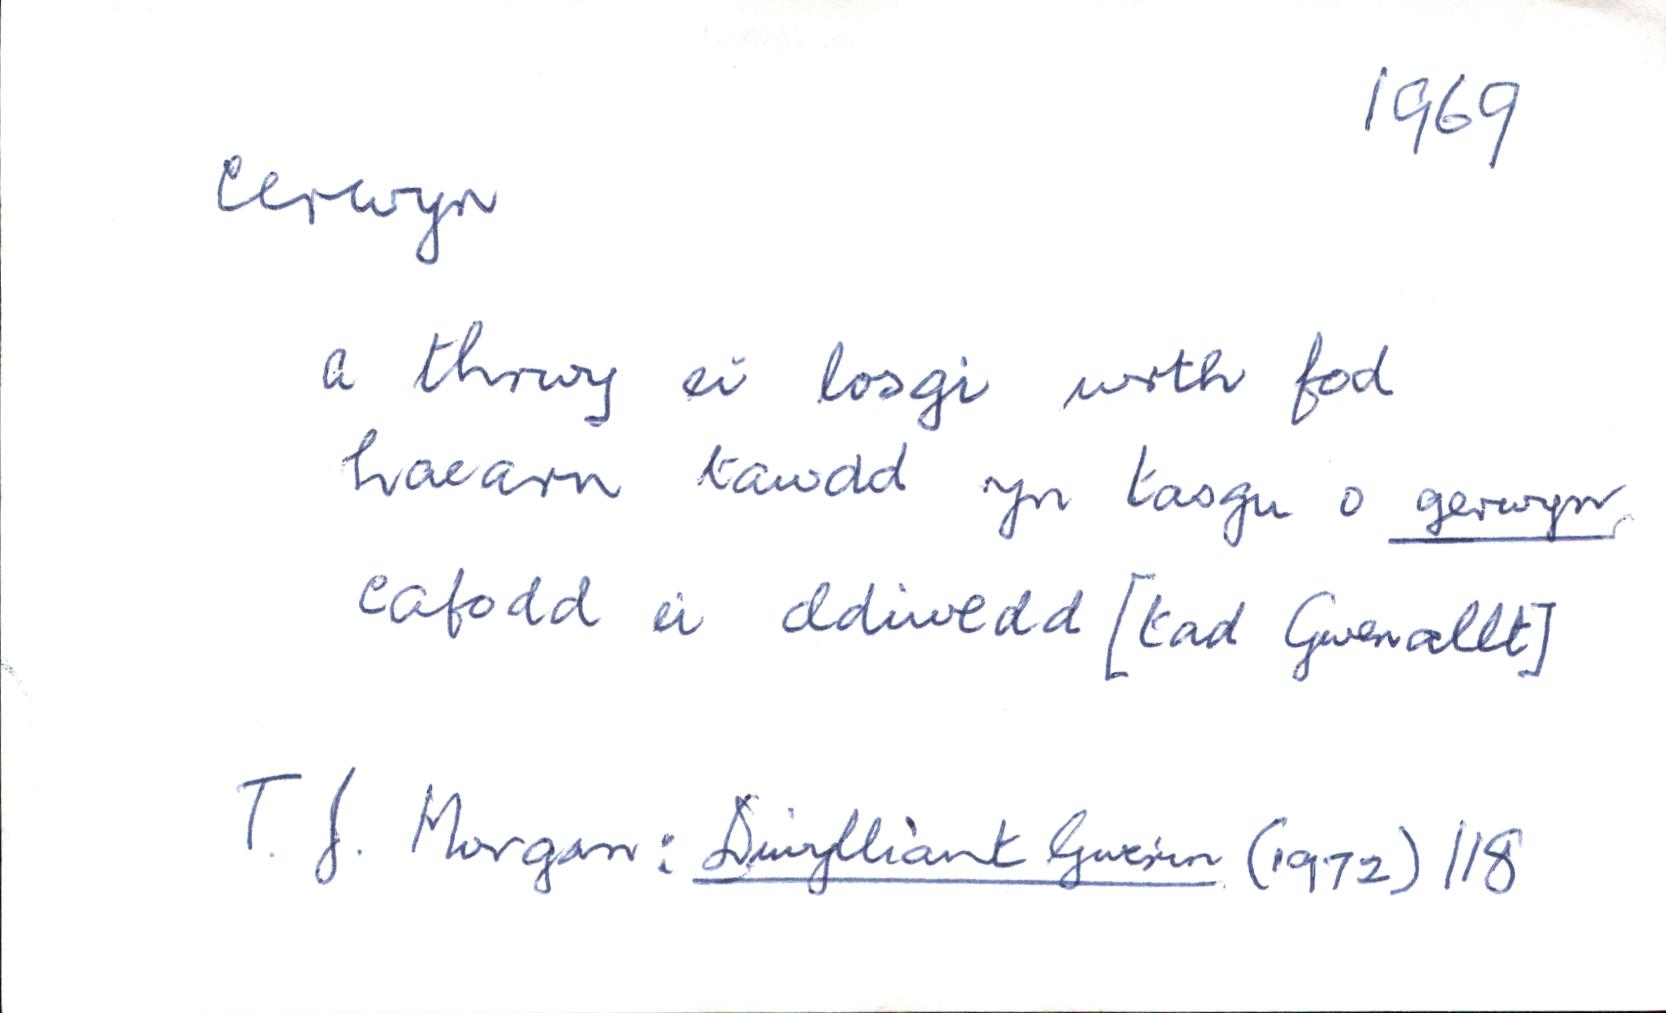 1969
cerwyn
a thrwy ei losgi wrth fod
haearn tawdd yn tasgu o gerwyn,
cafodd ei ddiwedd [tad Gwenallt]
T. J. Morgan: Diwylliant Gwerin (1972) 118